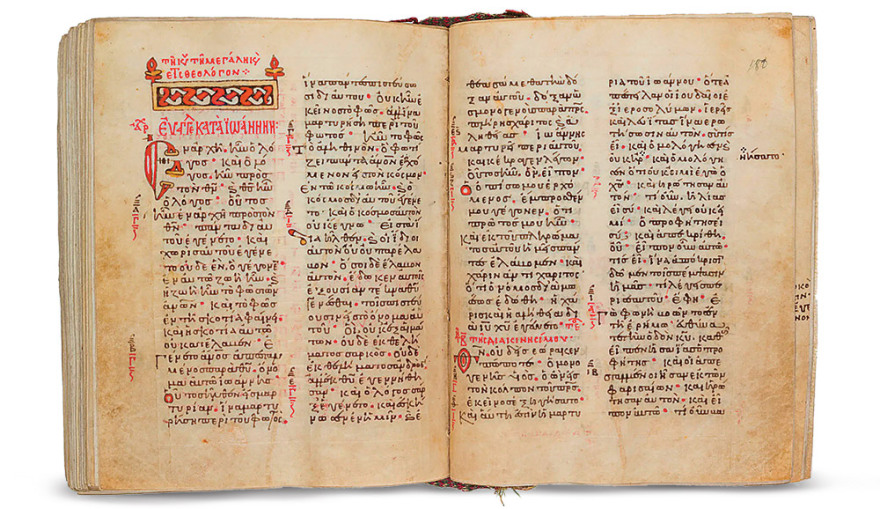 τῇ κυ τῇ μεγάλη κυ
θεολόγον
ευαγγε κατὰ ἰωάννην
Εν ἀρχῆ ἦν ὁ λό
γος · καὶ ὁ λό
γος ἦν προς
τὸν θν · καὶ θς ἦν
ὁ λόγος · οὗτος
ἦν ἐν ἀρχῆ πρὸς τὸν
θν · πάντα δι αὐ
τοῦ ἐγένετο · καὶ
χωρὶς αὐτοῦ ἐγένε
το οὐδὲ ἕν, ὃ γέγονεν
ἐν αὐτῶ ζωὴ ἦν · καὶ
ἡ ζωὴ ἦν τὸ φῶς τῶν
ἀνων · καὶ τὸ φῶς
ἐν τῆ σκοτία φαίνει
καὶ ἡ σκοτία αὐτὸ
οὐ κατέλαβεν · Ε
γένετο ἄνος ἀπεσταλ
μένος παρὰ θυ · ὄνο
μα αὐτῶ ἰωάννης
Οὗτος ἦλθεν εἰς μαρ
τυρίαν · ἵνα μαρτυ
ρήση περὶ τοῦ φωτός
ἵνα πάντες πιστεύσω
σι δι αὐτοῦ · οὐκ ἦν ἐ
κεῖνος τὸ φῶς · ἀλλ ἵνα
μαρτυρήση περὶ τοῦ
φωτός · ἦν τὸ φῶς
τὸ ἀληθινόν · ὃ φωτί
ζει πάντα ἄνον ἐρχό
μενον εἰς τὸν κόσμον
Εν τῶ κόσμω ἦν · καὶ ὁ
κόσμος δι αὐτοῦ ἐγένε
το · καὶ ὁ κόσμος αὐτὸν
οὐκ ἔγνω · εἰς τὰ ἴ
δια ἦλθεν · καὶ οἱ ἴδιοι
αὐτὸν οὐ παρέλα
βον · ὅσοι δὲ ἔλαβον
αὐτὸν · ἔδωκεν αὐτοῖς
ἐξουσίαν τέκνα θυ
γενέσθαι · τοῖς πιστεύ
ουσιν εἰς τὸ ὄνομα αὐ
τοῦ · οἳ οὐκ ἐξ αἱμά
των · οὐδὲ ἐκ θελή
ματος σαρκὸς · οὐδὲ
ἐκ θελήματος ἀνδρὸς
ἀλλ ἐκ θυ ἐγεννήθη
σαν · καὶ ὁ λόγος σὰρ
ξ ἐγένετο · καὶ ἐσκή
νωσεν ἐν ἡμῖν · καὶ ἐ
θεασάμεθα τὴν δό
ξαν αὐτοῦ · δόξαν ὡς
μονογενοῦς παρὰ πρς
πλήρης χάριτος καὶ ἀ
ληθείας · ἰωάννης
μαρτυρεῖ περὶ αὐτοῦ
καὶ κέκραγε λέγων
οὗτος ἦν, ὃν εἶπον
ὁ ὀπίσω μου ἐρχό
μενος · ἔμπροσθέν
μου γέγονεν · ὅτι
πρῶτός μου ἦν
καὶ ἐκ τοῦ πληρώμα
τος αὐτοῦ ἡμεῖς πάν
τες ἐλάβομεν · καὶ
χάριν ἀντὶ χάριτος
ὅτι ὁ νόμος διὰ μω
σέως ἐδόθη · ἡ χά
ρις καὶ ἡ ἀλήθεια δι
ὰ ιυ χυ ἐγένετο
τῇ β τῆς διακινησίμου
Θν οὐδεὶς ἑώρακεν
πώποτε · ὁ μονο
γενὴς υς · ὁ ὢν εἰς
τὸν κόλπον τοῦ πρς
ἐκεῖνος ἐξηγήσατο
Καὶ αὕτη ἐστὶν ἡ μαρτυ
ρία τοῦ ἰωάννου · ὅτε ἀπ
έστειλαν οἱ ἰουδαῖοι ἐ
ξ ἱεροσολύμων · ἱερεῖς
καὶ λευίτας ἵνα ἐρω
τήσωσιν αὐτόν · σὺ τίς
εἶ · καὶ ὡμολόγησεν καὶ
οὐκ · καὶ ὡμολόγη
σεν ὅτι οὐκ εἰμὶ ἐγὼ ὁ
χς · καὶ ἠρώτησαν αὐ
τόν · τί οὖν · ἠλίας
εἶ σύ · καὶ λέγει οὐκ εἰ
μί · ὁ προφήτης εἶ
σύ · καὶ ἀπεκρίθη
οὔ · εἶπον οὖν αὐτῶ
τίς εἶ · ἵνα ἀπόκρισιν
δῶμεν τοῖς πέμψασιν
ἡμᾶς · τί λέγεις πε
ρὶ σεαυτοῦ · ἔφη · ἐ
γὼ φωνὴ βοῶντος ἐν
τῆ ἐρήμω · εὐθύνα
τε τὴν ὁδὸν κυ · καθὼς
εἶπεν ἡσαΐας ὁ προ
φήτης · καὶ οἱ ἀπε
σταλμένοι ἦσαν ἐκ τῶν
φαρισαίων · καὶ ἠρώ
τησαν αὐτὸν · καὶ εἶ
πον αὐτῶ · τί οὖν βα